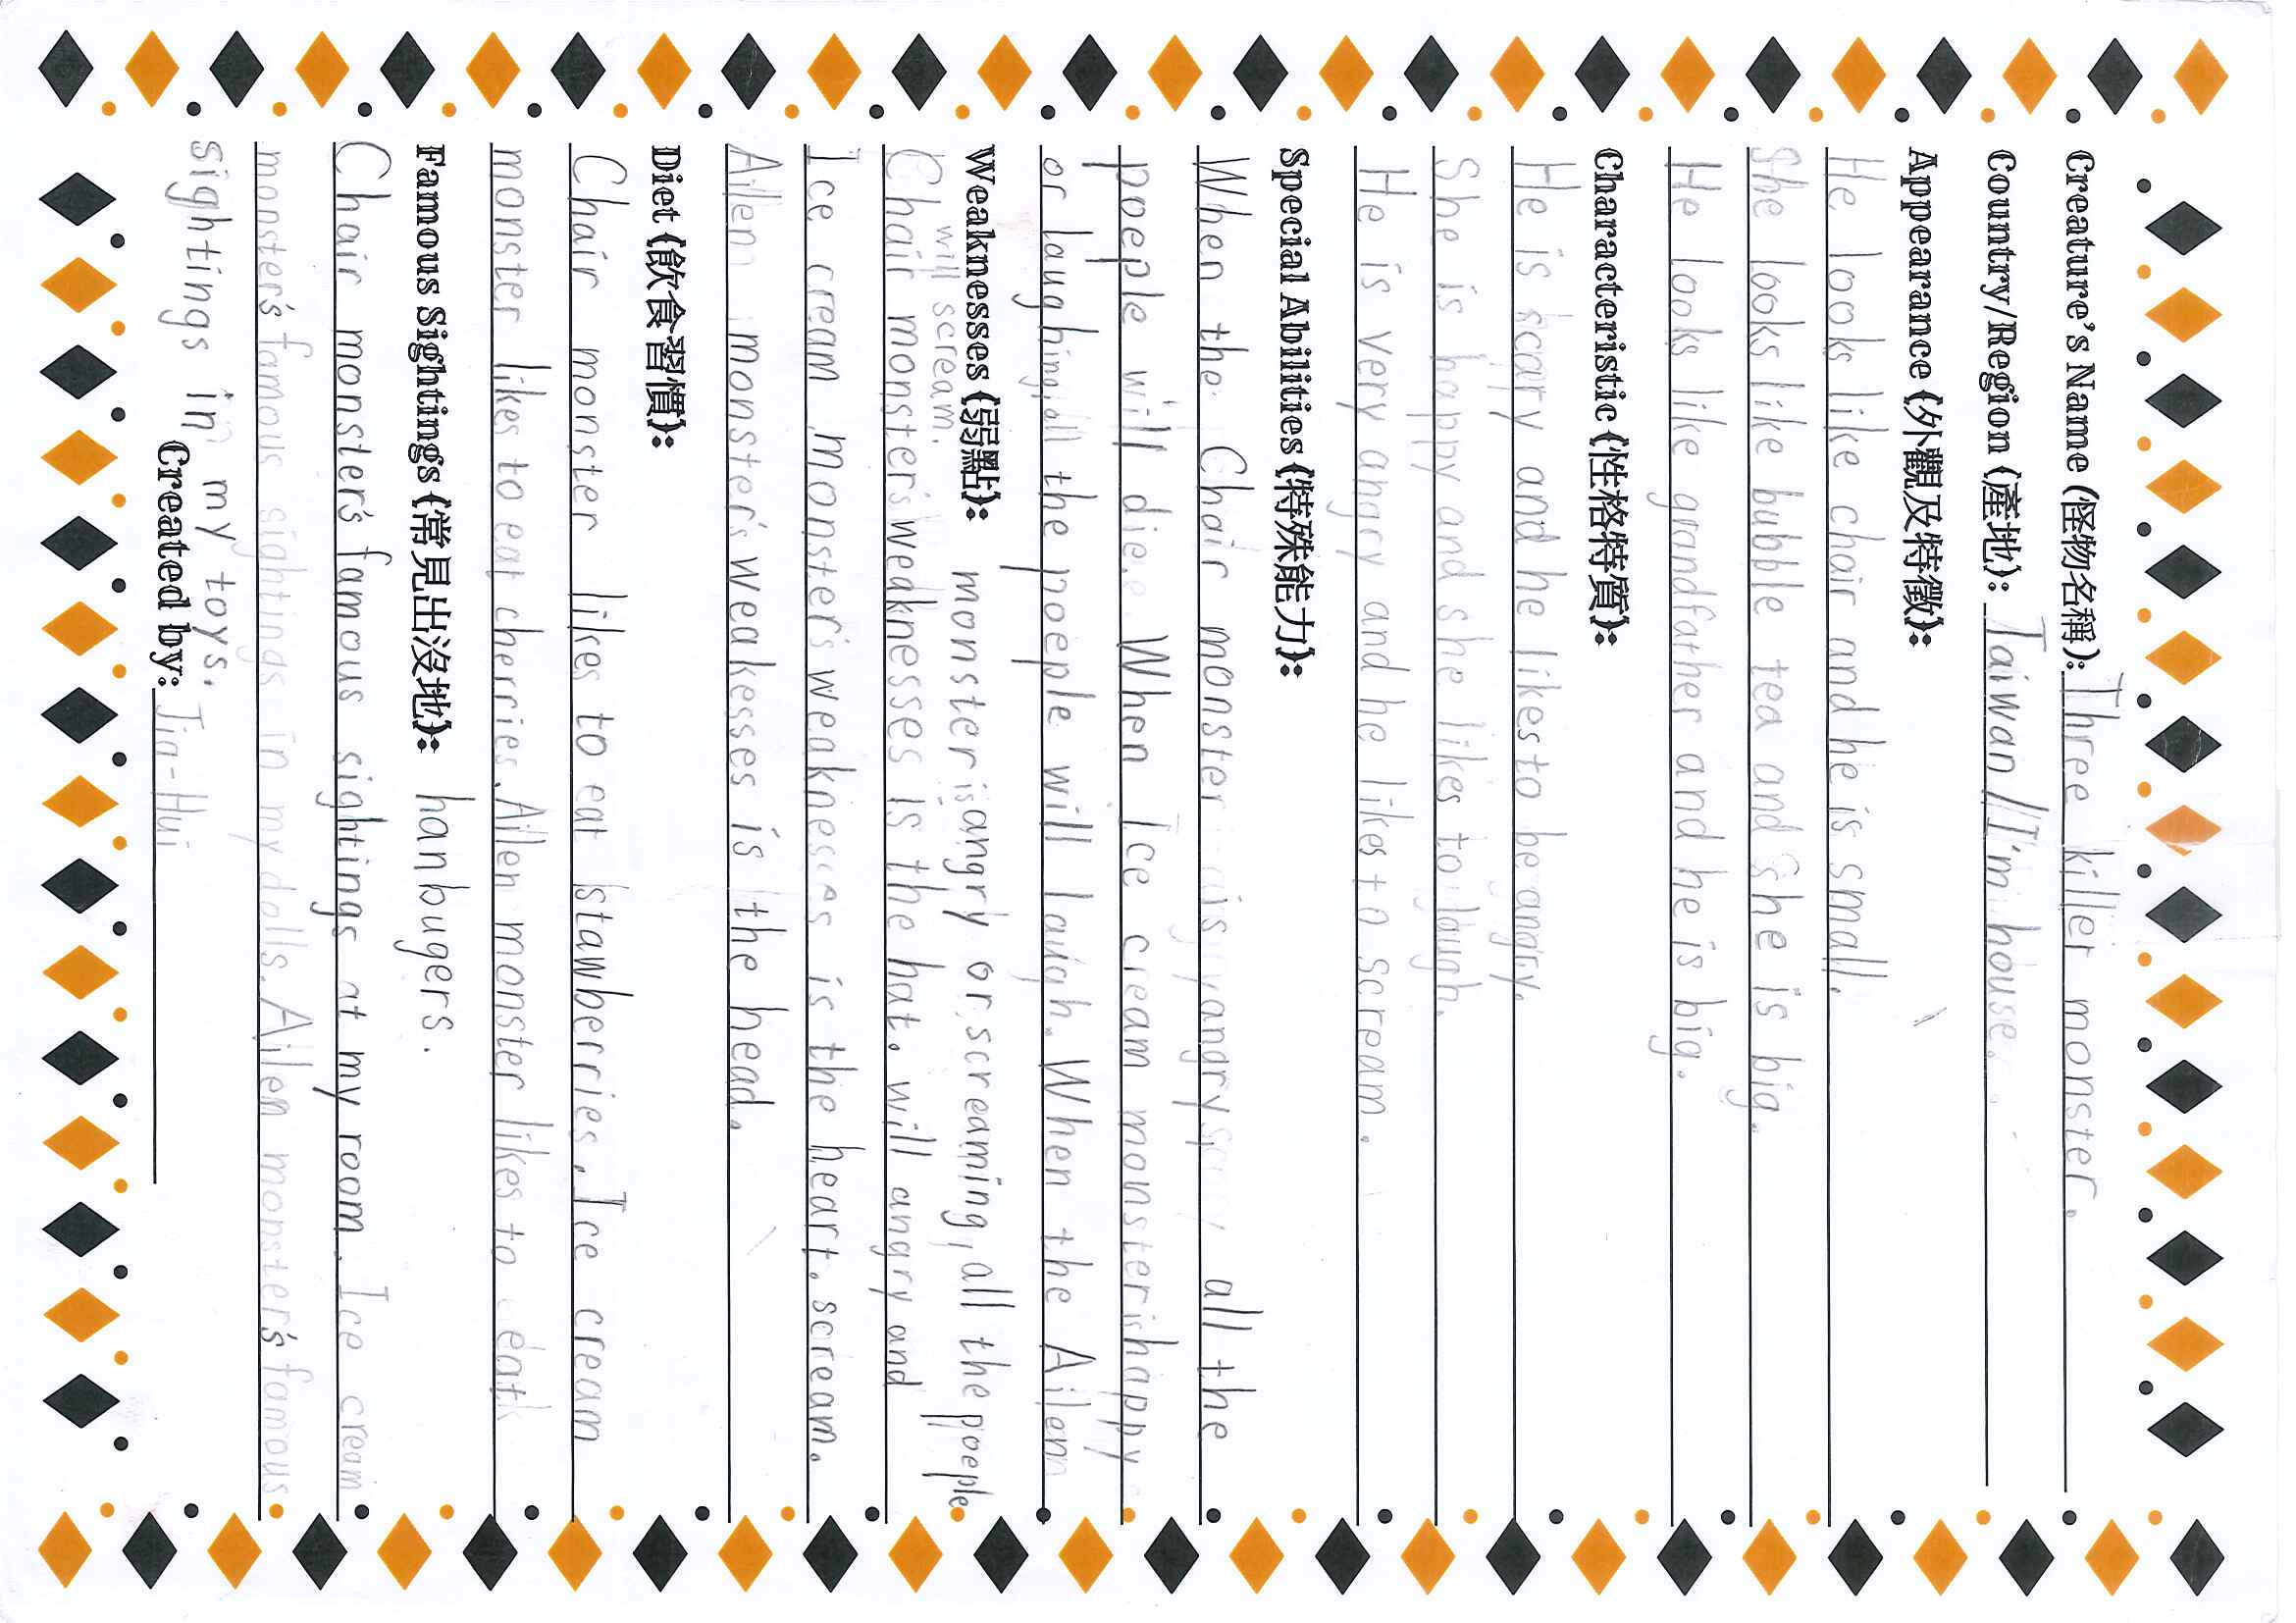 Creature's Name (怪物名稱): Three killer monster.
Country/Region (產地): Taiwan / I'm house.
Appearance (外觀及特徵):
He looks like chair and he is small.
She looks like bubble tea and She is big.
He looks like grandfather and he is big.
Characteristic (性格特質):
He is scary and he likes to be angry.
She is happy and she likes to laugh.
He is very angry and he likes to scream.
Special Abilities (特殊能力):
When the Chair monster is angry all the
poeple will die. When Ice cream monster is happy
or laughing, all the poeple will laugh. When the Ailen
monster is angry or screaming, all the poeple
will scream.
Weaknesses (弱點):
Chair monster's weaknesses is the hat. will angry and
Ice cream monster's weaknesses is the heart. scream.
Ailen monster's weakesses is the head.
Diet (飲食習慣):
Chair monster likes to eat stawberries. Ice cream
monster likes to eat cherries. Ailen monster likes to eat
hanbugers.
Famous Sightings (常見出沒地):
Chair monster's famous sightings at my room. Ice cream
monster's famous sightings in my dolls. Ailen monster's famous
sightings in my toys.
Created by: Jia-Hui